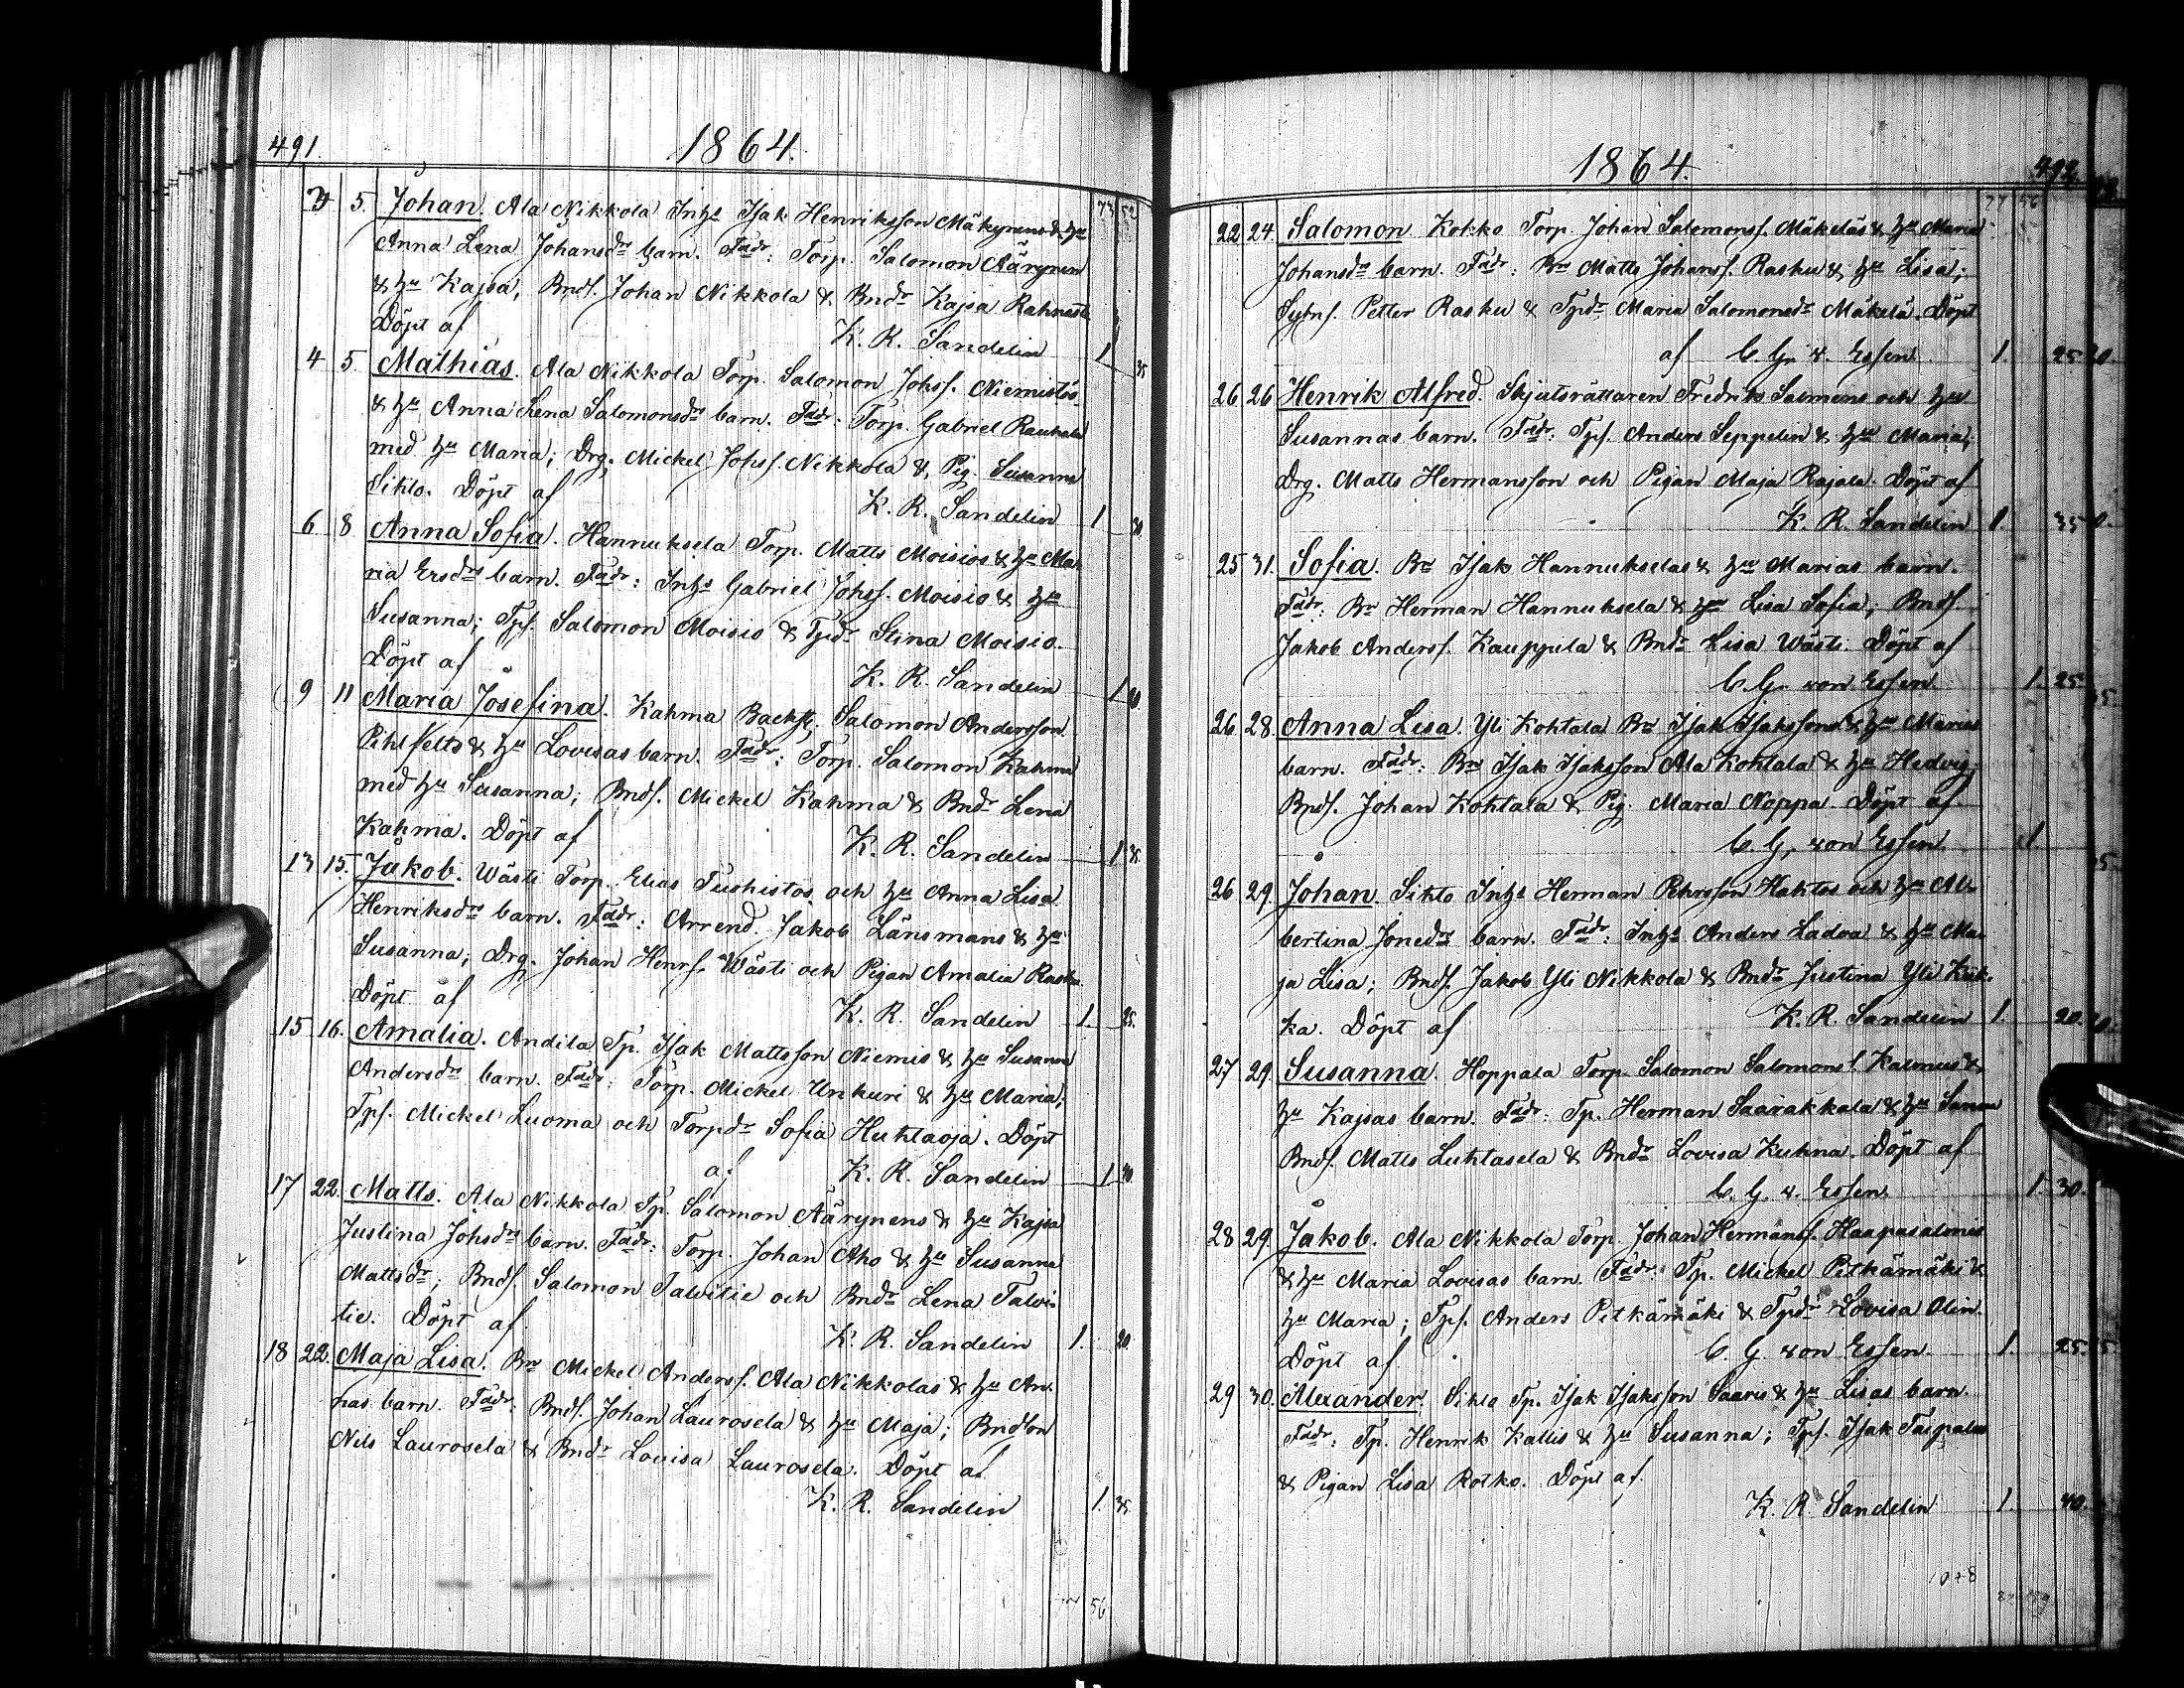 491. 1864.
5. Johan. Ala Nikkola Inhs Isak Henriksson Mäkynens & hu
Anna Lena Johansdrs barn. Fadr: Torp. Salomon Äärynen
& hu Kajsa, Bnds. Johan Nikkola & Bndr Kajsa
Döpt af K. R. Sandelin 1
4 5. Mathias. Ala Nikkola Torp. Salomon Johss. Niemistös
& hu Anna Lena Salomonsdrs barn. Fadr: Torp. Gabriel Rauhala
med hu Maria; Drg. Mickel Johss. Nikkola & Pig. Susanna
Sihto. Döpt af K. R. Sandelin 1
6 8 Anna Sofia. Hannuksela Torp. Matts Moisios & hu Ma-
ria Ersdrs barn. Fadr: Inhs Gabriel Johss. Moisio & hu
Susanna; Tps. Salomon Moisio & Tpdr Stina Moisio.
Döpt af K. R. Sandelin 1
9 11 Maria Josefina. Kahma Backst. Salomon Andersson
Pihlfelts & hu Lovisas barn. Fadr: Torp. Salomon Kahma
med hu Susanna; Bnds. Mickel Kahma & Bndr Lena
Kahma. Döpt af K. R. Sandelin 1
13 15. Jakob. Wästi Torp. Elias Tuohistos och hu Anna Lisa
Henriksdrs barn. Fadr: Arrend. Jakob Länsmans & hu
Susanna; Drg. Johan Henrs. Wästi och Pigan Amalia Rasku
Döpt af K. R. Sandelin 1. 25.
15 16. Amalia. Andila Tp. Isak Mattsson Niemis & hu Susanna
Andersdrs barn. Fadr: Torp. Mickel Unkuri & hu Maria;
Tps. Mickel Luoma och Torpdr Sofia Huhtaoja. Döpt
af K. R. Sandelin 1
17 22. Matts. Ala Nikkola Tp. Salomon Äärynens & hu Kajsa
Justina Johsdrs barn. Fadr: Torp. Johan Aho & hu Susanna
Mattsdr; Bnds. Salomon Talvitie och Bndr Lena Talvi-
tie. Döpt af K. R. Sandelin 1. 20.
18 22. Maja Lisa. Bn Mickel Anderss. Ala Nikkolas & hu An-
nas barn. Fadr: Bnds. Johan Laurosela & hu Maja; Bndson
Nils Laurosela & Bndr Lovisa Laurosela. Döpt af
K. R. Sandelin 1.
56
1864. 492
22 24. Salomon. Kokko Torp. Johan Salomonss. Mäkeläs & hu Maria
Johansdrs barn. Fadr: Bn Matts Johanss. Rasku & hu Lisa;
Sytns. Petter Rasku & Tpdr Maria Salomonsdr Mäkelä. Döpt
af C. G. v. Essen 1. 25
26 26 Henrik Alfred. Skjutsrättaren Fredrik Salmens och hu
Susannas barn. Fadr: Tps. Anders Seppelin & hu Maria;
Drg. Matts Hermansson och Pigan Maja Rajala. Döpt af
K. R. Sandelin 1. 35
25 31. Sofia. Bn Isak Hannukselas & hu Marias barn.
Fadr: Bn Herman Hannuksela & hu Lisa Sofia; Bnds.
Jakob Anderss. Kauppila & Bndr Lisa Wästi. Döpt af
C. G. von Essen. 1. 25.
26 28. Anna Lisa. Yli Kohtala Bn Isak Isakssons & hu Marias
barn. Fadr: Bn Isak Isaksson Ala Kohtala & hu Hedvig;
Bnds. Johan Kohtala & Pig. Maria Noppa. Döpt af
C. G. von Essen 1
26 29. Johan. Sihto Inhs Herman Petersson Hahtos och hu Al-
bertina Jonedrs barn. Fadr: Inhs Anders Ladva & hu Ma-
ja Lisa; Bnds. Jakob Yli Nikkola & Bndr Justina Yli Kuk-
ka. Döpt af K. R. Sandelin 1. 20.
27 29. Susanna. Hoppala Torp. Salomon Salomonss. Kalmus &
hu Kajsas barn. Fadr: Tp. Herman Saarakkala & hu Sanna
Bnds. Matts Luhtasela & Bndr Lovisa Kuhna. Döpt af
C. G. v. Essen. 1. 30.
28 29. Jakob. Ala Nikkola Torp. Johan Hermanss. Haapasalmis
& hu Maria Lovisas barn. Fadr: Tp. Mickel Pitkämäki &
hu Maria; Tps. Anders Pitkämäki & Tpdr Lovisa Olin.
Döpt af C. G. von Essen. 1. 25.
29 30. Alexander. Sihto Tp. Isak Isaksson Saaris & hu Lisas barn.
Fadr: Tp. Henrik Kallis & hu Susanna; Tps. Isak Taipalus
& Pigan Lisa Rotko. Döpt af.
K. R. Sandelin 1. 40.
10+8